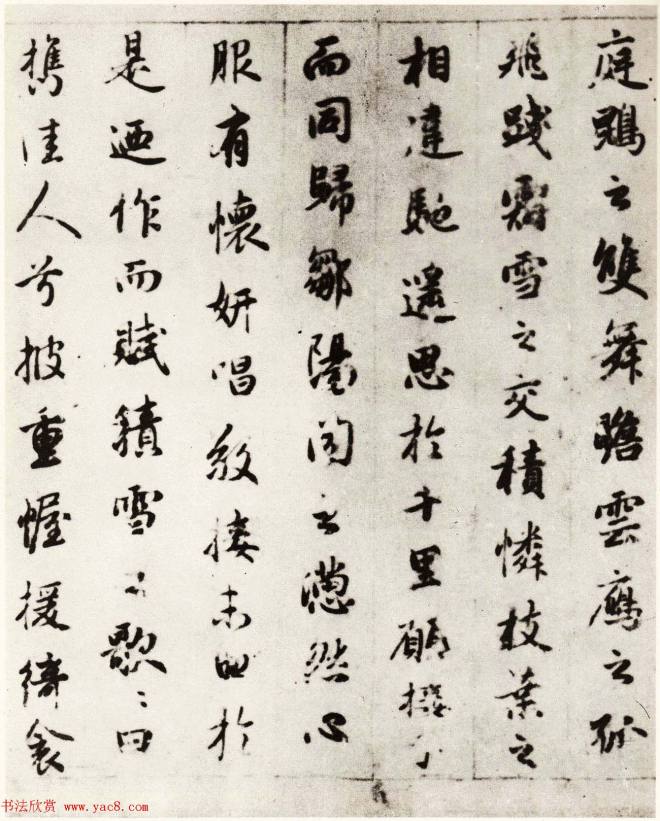 庭鵾之雙舞瞻雲鴈之孤
飛踐霜雪之交積憐枝葉之
相違馳遙思於千里願接手
而同歸鄒陽聞之懣然心
服有懷妍唱敬接末曲於
是迺作而賦積雪之歌〻曰
攜佳人兮披重幄援綺衾
书法欣赏 www.yac8.com